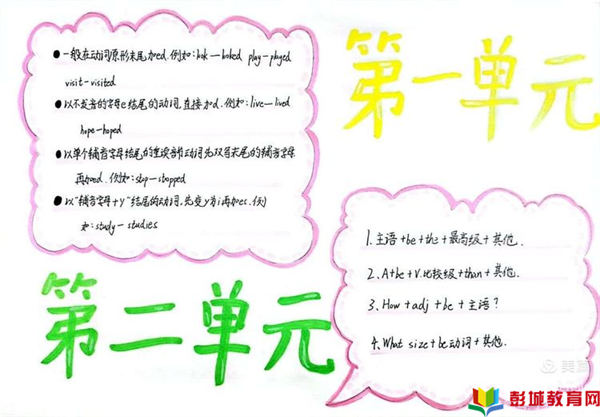 一般在动词原形末尾加ed.例如:look—looked play-played
visit-visited
以不发音的字母e结尾的动词,直接加d.例如:live-lived
hope-hoped
以单个辅音字母结尾的重读音节动词先双写末尾的辅音字母
再加ed.例如:stop-stopped
以"辅音字母+y"结尾的动词.先变y为i再加es.例
如:study-studies
第一单元
第二单元
1.主语+be+the+最高级+其他.
2.A+be+V.比较级+than+其他.
3.How+adj+be+主语?
4.What size+be动词+其他.
美篇
彭城教育网